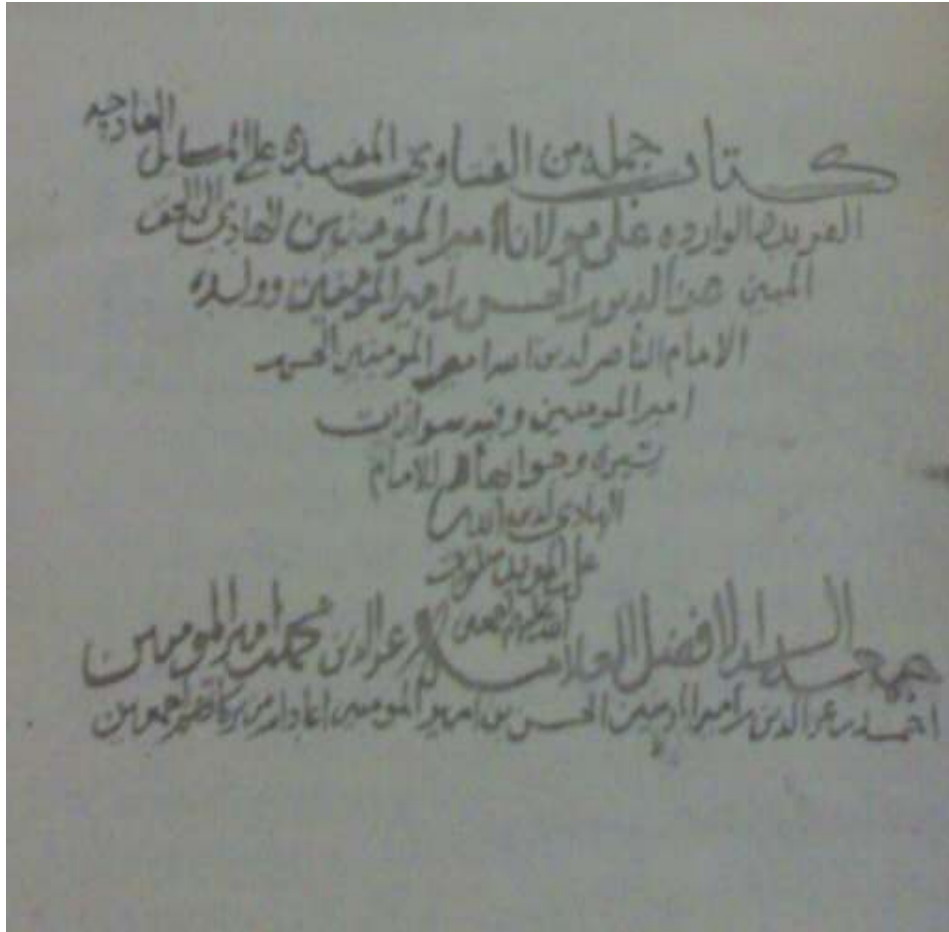 كتاب جملة من الفتاوى المفيده على المسائل
الفريده الوارده على مولانا امير المومنين الهادي الى الحق
المبين عز الدين بن الحسن بن امير المومنين وولده
الامام الناصر لدين الله امير المومنين الحسن بن
امير المومنين وفيه سوالات
كثيره وجواباتها للامام
الهادي لدين الله
علي بن المويد
الله عليهم اجمعين
جمعه السيد الافضل العلامه عز الدين محمد بن امير المومنين
احمد بن عز الدين بن امير المومنين الحسن بن امير المومنين اعاد الله من بركاتهم اجمعين